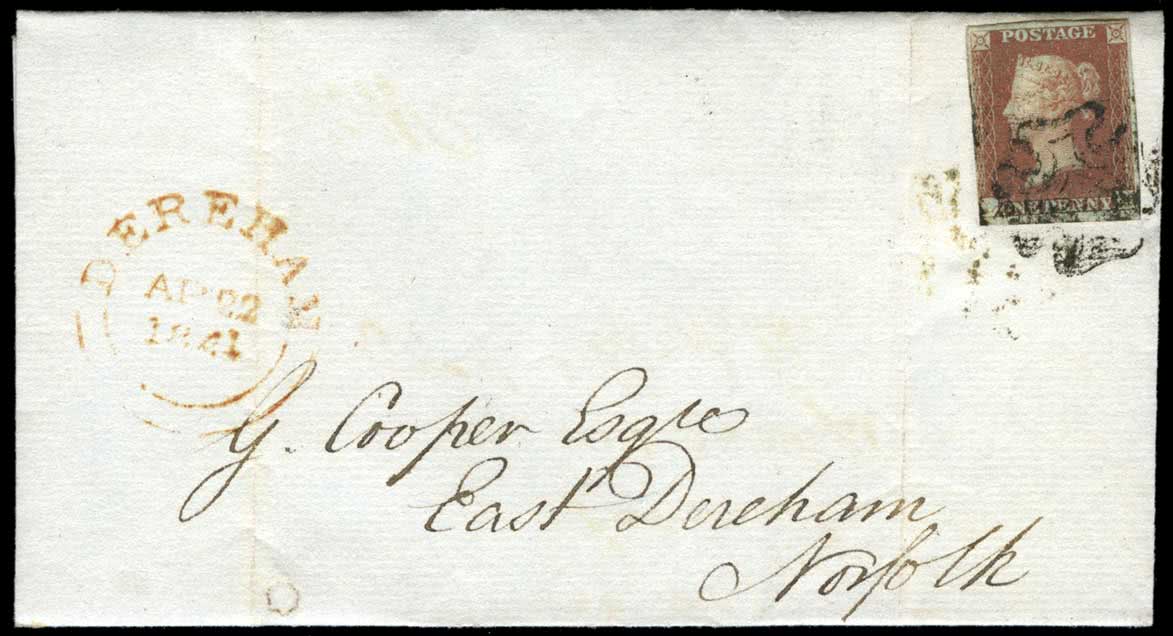 POSTAGE
ONE PENNY
DEREHAM
AP 22
1841
G. Cooper Esqre
East Dereham
Norfolk